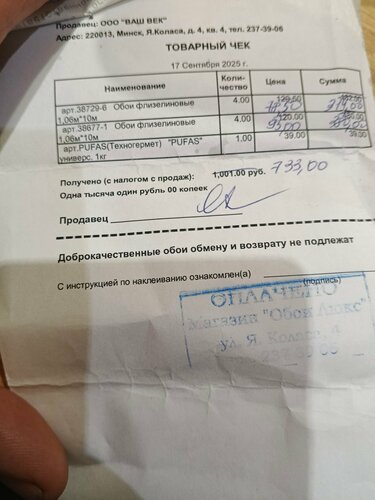 Продавец: ООО "ВАШ ВЕК"
Адрес: 220013, Минск, Я.Коласа, д. 4, кв. 4, тел. 237-39-06
ТОВАРНЫЙ ЧЕК
17 Сентября 2025 г.
Наименование Коли-чество Цена Сумма
арт.38729-6 Обои флизелиновые 1,06м*10м 4.00
арт.38677-1 Обои флизелиновые 1,06м*10м 4.00 120.00
арт.PUFAS(Техногермет) "PUFAS" универс. 1кг 1.00 39.00 39.00
Получено (с налогом с продаж): 1,001.00 руб. 733,00
Одна тысяча один рубль 00 копеек
Продавец
Доброкачественные обои обмену и возврату не подлежат
С инструкцией по наклеиванию ознакомлен(а)
(подпись)
ОПЛАЧЕНО
Магазин "Обои Люкс"
ул. Я. Коласа, 4